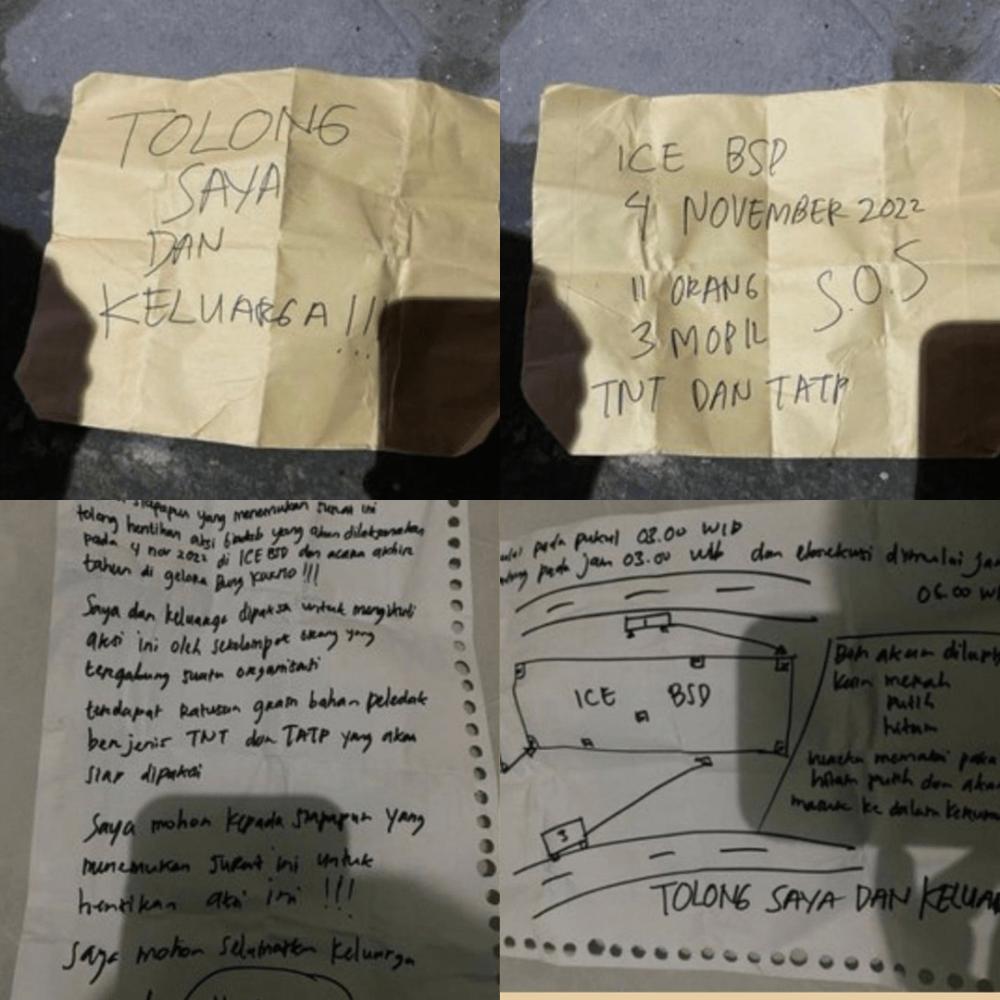 TOLONG
SAYA
DAN
KELUARGA!!!
ICE BSD
4 NOVEMBER 2022
11 ORANG
S.O.S
3 MOBIL
TNT DAN TATP
siapapun yang menemukan surat ini
tolong hentikan aksi yang akan dilaksanakan
pada 4 nov 2022 di ICE BSD dan acara akhir
tahun di gelora Bung Karno!!!
Saya dan keluarga dipaksa untuk mengikuti
aksi ini oleh sekelompok orang yang
tergabung suatu organisasi
terdapat Ratusan gram bahan peledak
berjenis TNT dan TATP yang akan
siap dipakai
Saya mohon kepada siapapun yang
menemukan surat ini untuk
hentikan aksi ini !!!
Saya mohon selamatkan keluarga
pada pukul 03.00 WIB
pada jam 03.00 WIB dan eksekusi dimulai jam
06.00
1
ICE BSD
3
Bom akan
kain merah
putih
hitam
mereka memakai
hitam putih dan akan
masuk ke dalam
TOLONG SAYA DAN